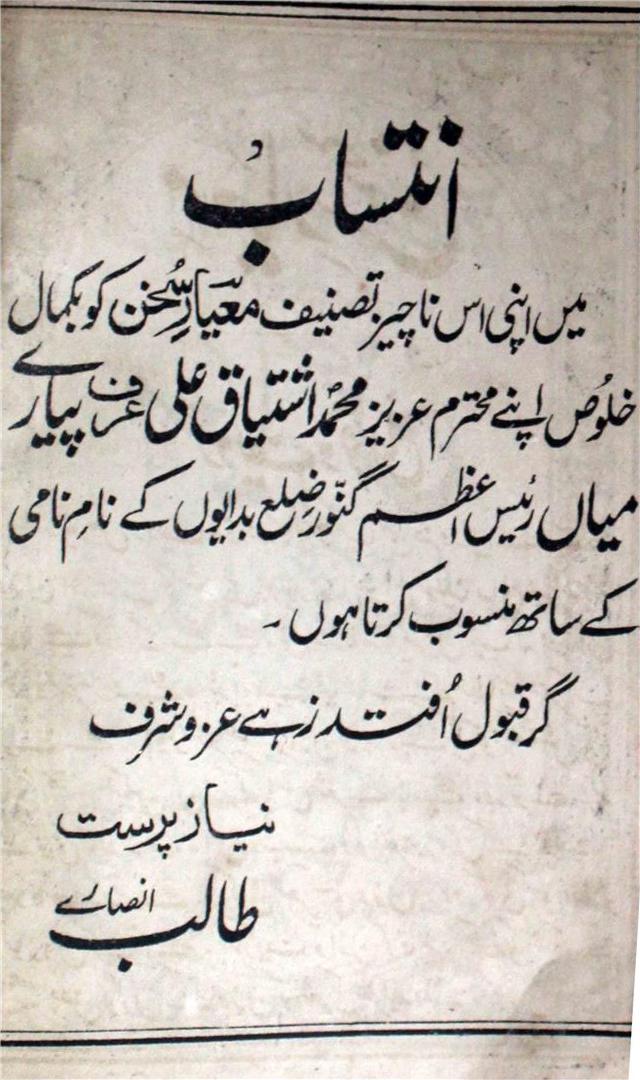 انتساب
میں اپنی اس ناچیز تصنیف معیارِ سُخن کو بکمال
خلوُص اپنے محترم عزیز محمدؐ اشتیاق علی عرف پیارے
میاں رئیس اعظم گنّور ضلع بدایوں کے نامِ نامی
کے ساتھ منسوب کرتا ہوں۔
گر قبول اُفتد زہے عز و شرف
نیاز پرست
طالب انصارے